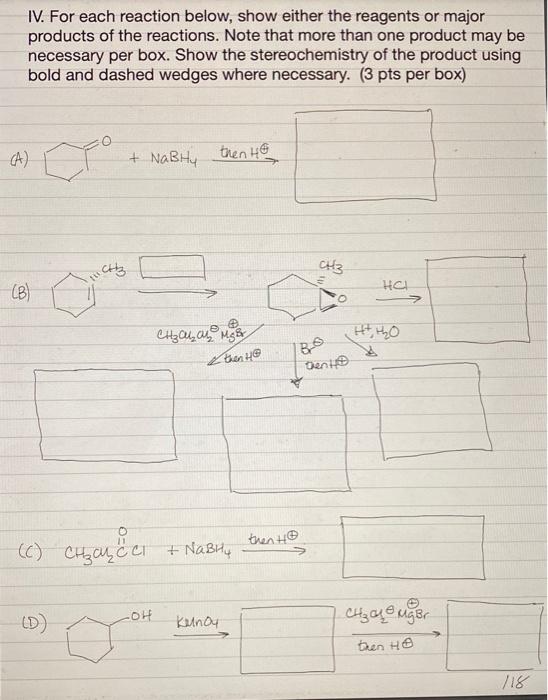 IV. For each reaction below, show either the reagents or major
products of the reactions. Note that more than one product may be
necessary per box. Show the stereochemistry of the product using
bold and dashed wedges where necessary. (3 pts per box)
(A) O + NaBH4 then H⊕
(B) CH3 CH3 O HCl
CH3CH2CH2⊖ ⊕MgBr then H⊕
Br⊖ then H⊕
H+, H2O
(C) CH3CH2CCl O + NaBH4 then H⊕
(D) OH KMnO4 CH3CH2⊖ ⊕MgBr then H⊕
/18